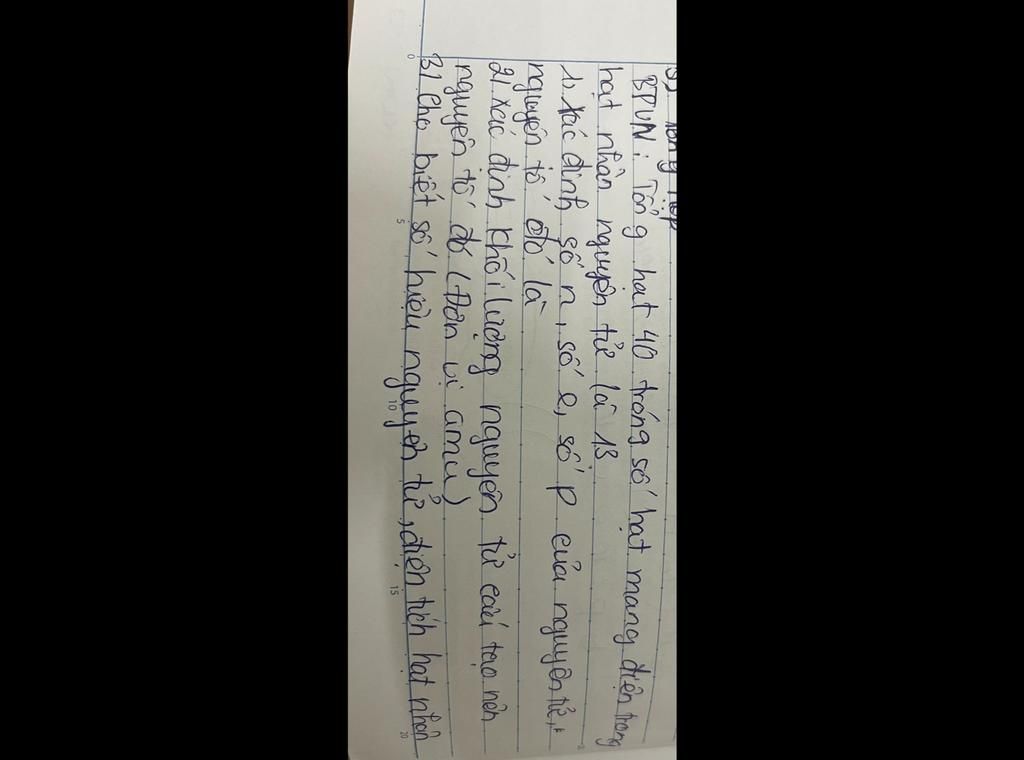 BDVN: Tổng hạt 40 trong số hạt mang điện trong
hạt nhân nguyên tử là 13
1, xác định số n, số e, số p của nguyên tử,
nguyên tố đó là
2, xác định khối lượng nguyên tử cấu tạo nên
nguyên tố đó (Đơn vị amu)
3, Cho biết số hiệu nguyên tử, điện tích hạt nhân
0 5 10 15 20